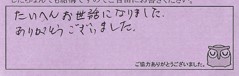 たいへんお世話になりました.
ありがとうございました.
ご協力ありがとうございました。